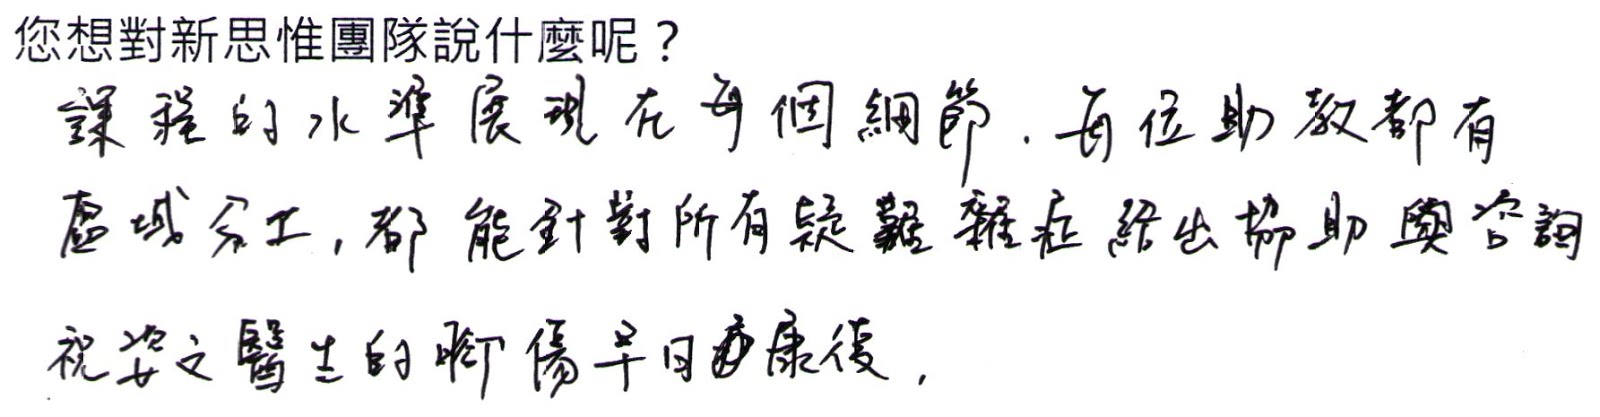 您想對新思惟團隊說什麼呢？
課程的水準展現在每個細節．每位助教都有
區域分工，都能針對所有疑難雜症給出協助與咨詢
祝姿文醫生的腳傷早日康復，